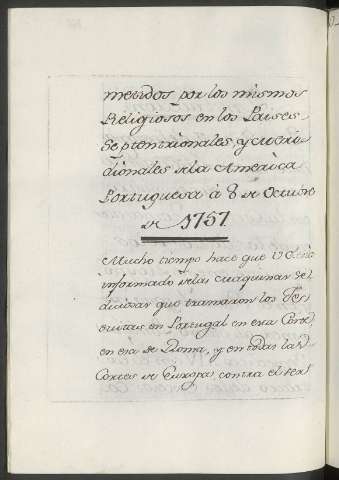 metidos por los mismos
Religiosos en los Paises
Septentrionales, y Meri-
dionales de la America
Portuguesa à 8 de Octubre
de 1757
Mucho tiempo hace que V. Exª
informado de las maquinas se-
diciosas que tramaron los Jes-
uitas en Portugal en esa Corte,
en esa de Roma, y en todas las
Cortes de Europa, contra el ser